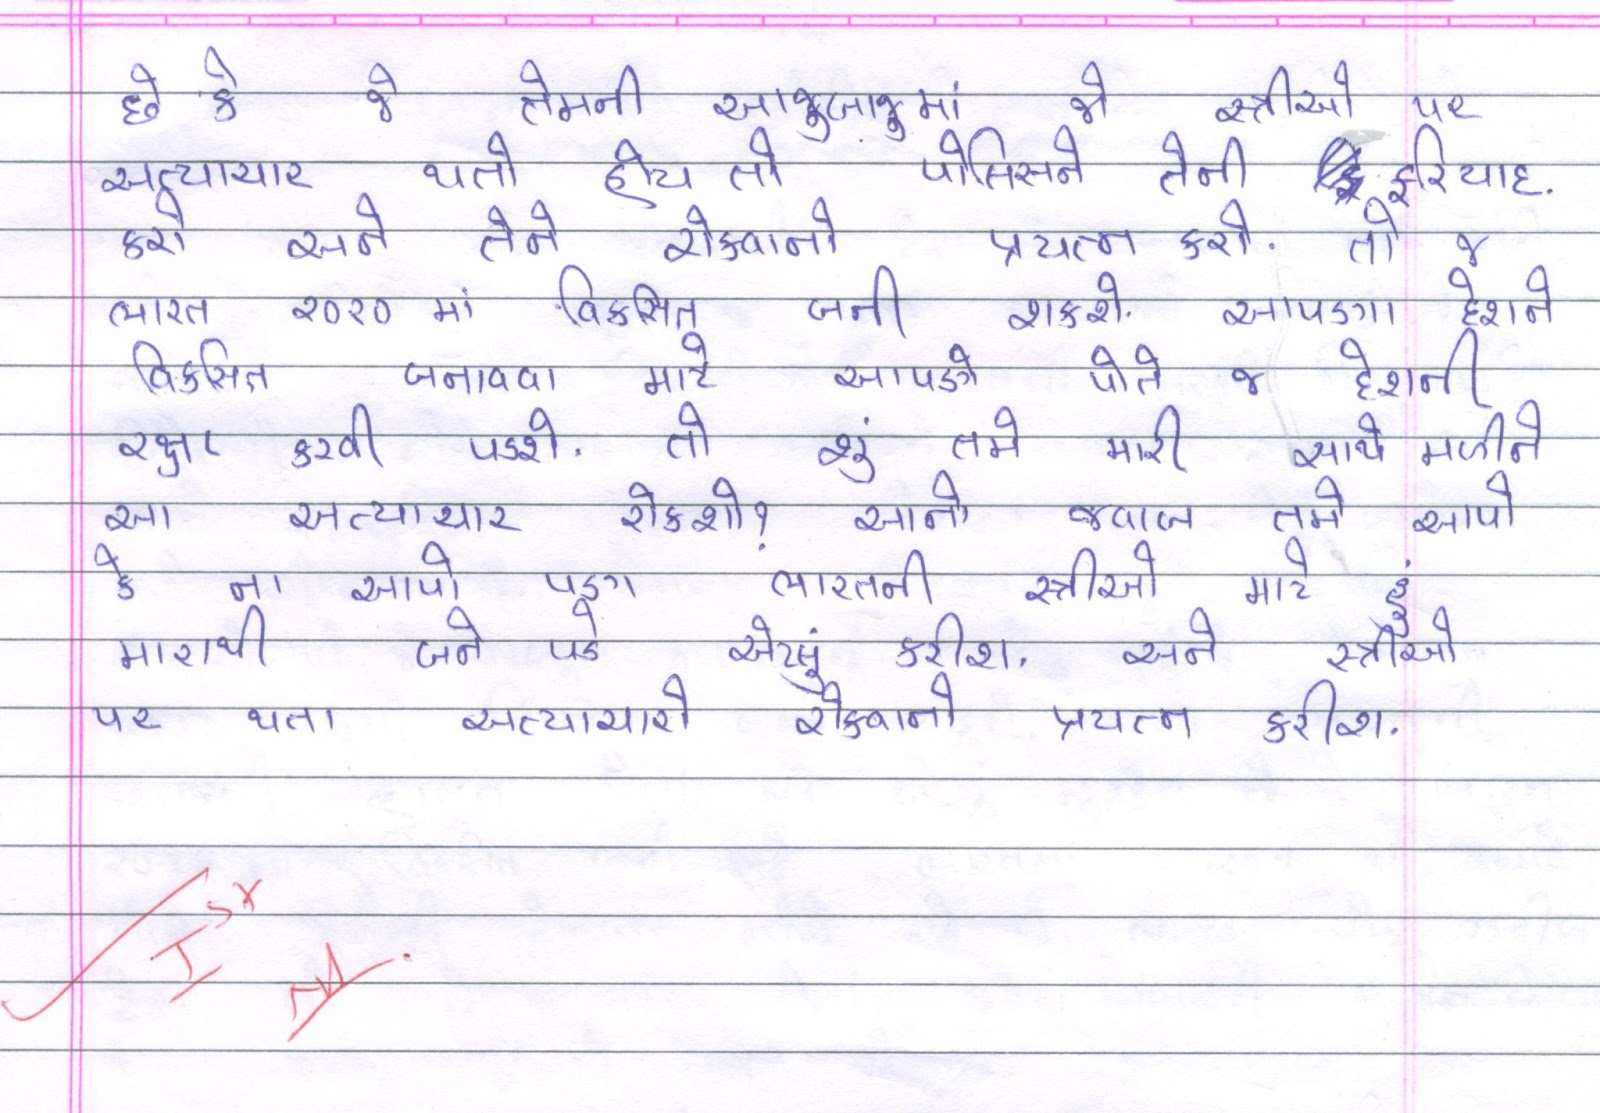 છે કે જે તેમની આજુબાજુમાં જો સ્ત્રીઓ પર
અત્યાચાર થતો હોય તો પોલિસને તેની ફરિયાદ.
કરો અને તેને રોકવાનો પ્રયત્ન કરો. તો જ
ભારત ૨૦૨૦ માં વિકસિત બની શકશે. આપણા દેશને
વિકસિત બનાવવા માટે આપણે પોતે જ દેશની
રક્ષા કરવી પડશે. તો શું તમે મારી સાથે મળીને
આ અત્યાચાર રોકશો? આનો જવાબ તમે આપો
કે ના આપો પણ ભારતની સ્ત્રીઓ માટે હું
મારાથી બને પડે એટલું કરીશ. અને સ્ત્રીઓ
પર થતા અત્યાચારો રોકવાનો પ્રયત્ન કરીશ.